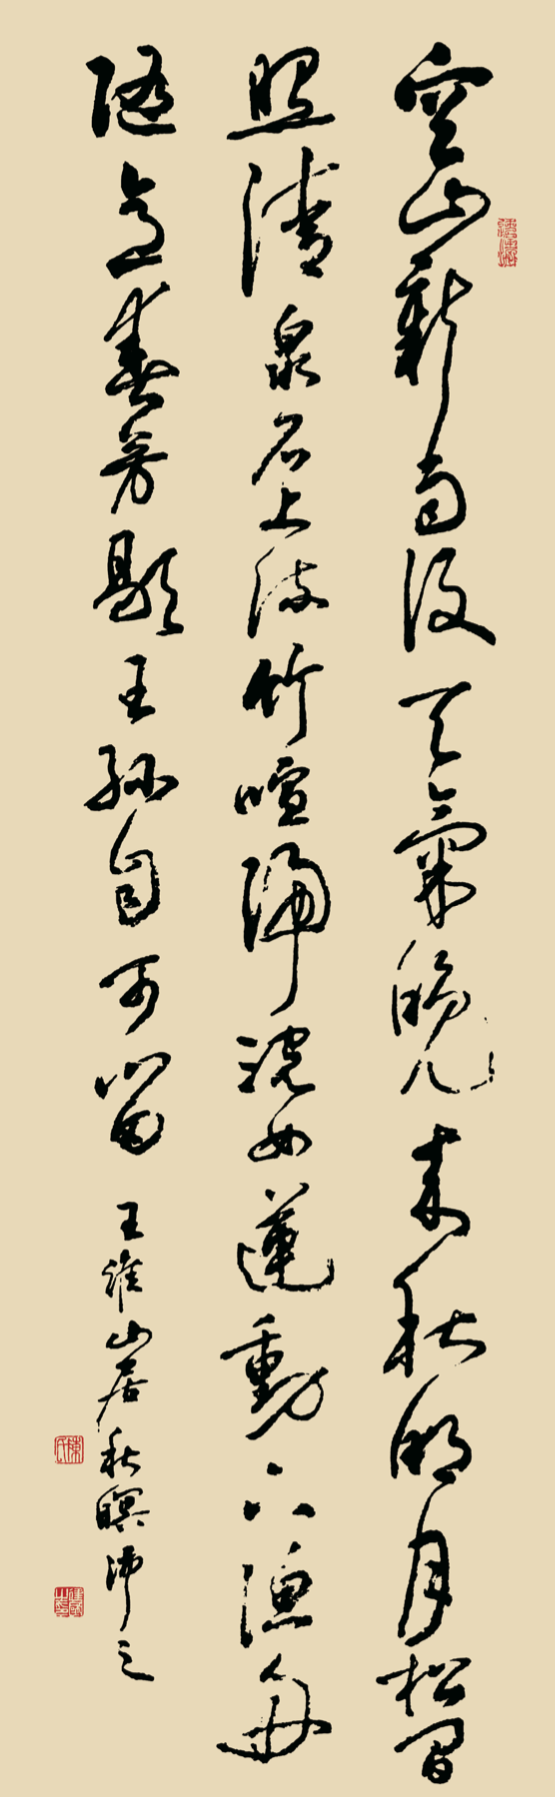 空山新雨後天氣晚來秋明月松間
照清泉石上流竹喧歸浣女蓮動下漁舟
隨意春芳歇王孫自可留 王維山居秋暝 之